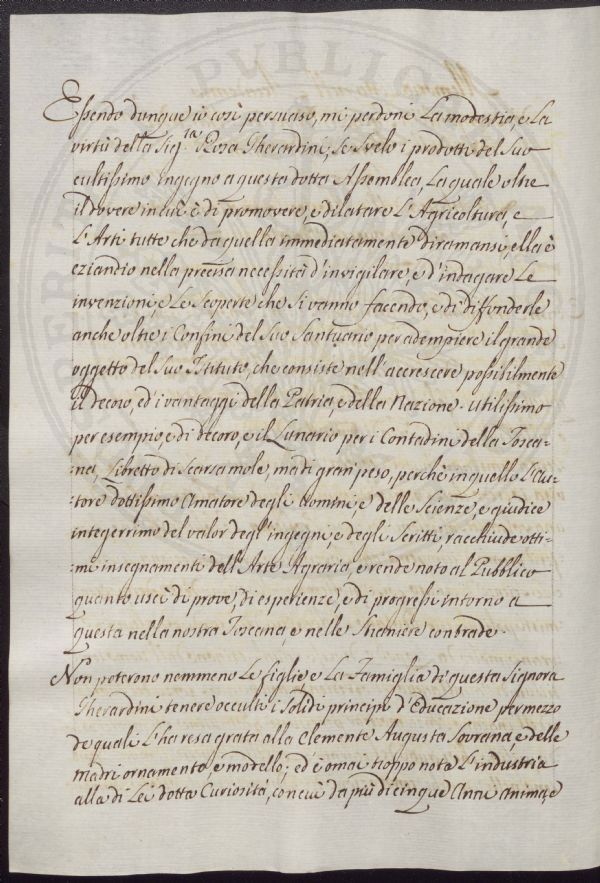 Essendo dunque io così persuaso, mi perdoni La modestia, e La
virtù della Sig.ra Rosa Gherardini, se svelo i prodotti del suo
cultissimo ingegno a questa dotta Assemblea, La quale oltre
il dovere in cui è di promovere, e dilatare L'Agricoltura, e
L'Arti tutte che da quella immediatamente diramansi, ella è
eziandio nella precisa necessità d'invigilare, e d'indagare Le
invenzioni, e Le scoperte che si vanno facendo, e di diffonderle
anche oltre i Confini del suo Santuario per adempiere il grande
oggetto del suo Istituto, che consiste nell'accrescere possibilmente
il decoro, ed i vantaggi della Patria, e della Nazione. Utilissimo
per esempio, e di decoro, e il Lunario per i Contadini della Tosca-
-na, Libretto di scarsa mole, ma di gran peso, perchè in quello L'Au-
-tore dottissimo amatore degli uomini e delle Scienze, e giudice
integerrimo del valor degl'ingegni, e degli Scritti, racchiude otti-
-mi insegnamenti dell'Arte Agraria, e rende noto al Pubblico
quanto uscì di prove, di esperienze, e di progressi intorno a
questa nella nostra Toscana, e nelle straniere contrade.
Non poterono nemmeno Le figlie, e La Famiglia di questa Signora
Gherardini tenere occulti i solidi principi d'Educazione per mezzo
de quali L'ha resa grata alla Clemente Augusta Sovrana, e delle
madri ornamento, e modello; ed è omai troppo nota L'industria
alla di Lei dotta Curiosità, con cui da più di cinque Anni anima, e
PUBLIC